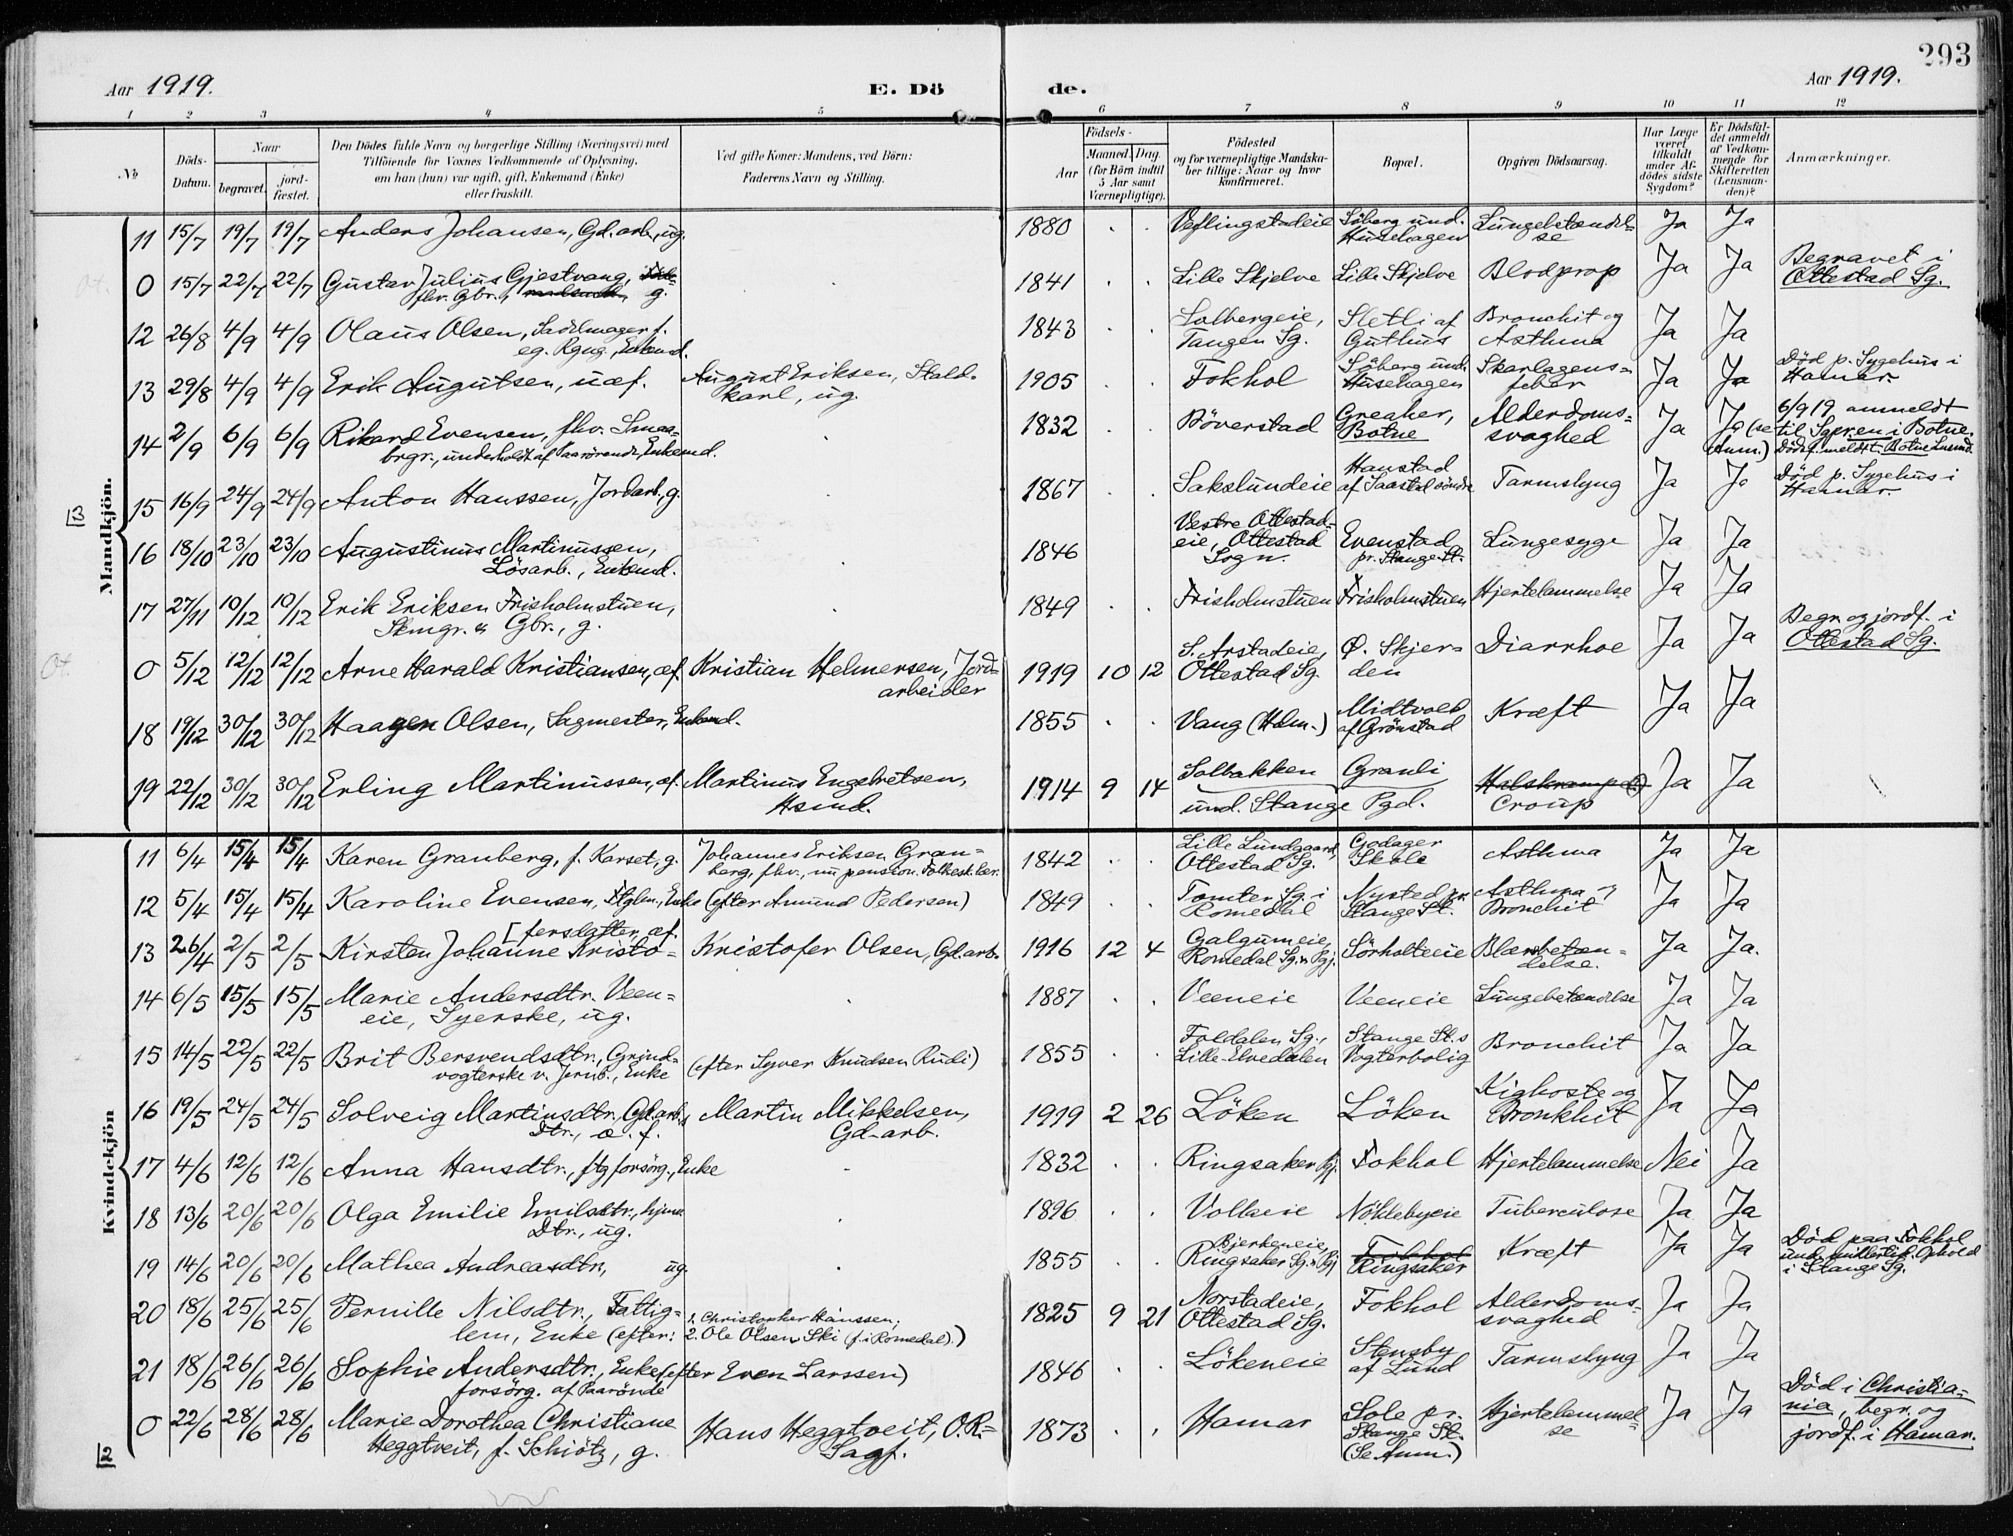 293
Aar 1919.
E. Dö
de.
Aar 1919.
1 2 3 4 5 6 7 8 9 10 11 12
No
Döds-
Datum.
Naar
begravet.
jord-
fæstet.
Den Dödes fulde Navn og borgerlige Stilling (Næringsvei) med
Tilföiende for Voxnes Vedkommende af Oplysning,
om han (hun) var ugift, gift, Enkemand (Enke)
eller fraskilt.
Ved gifte Koner: Mandens, ved Börn:
Faderens Navn og Stilling.
Födsels-
Aar
Maaned. Dag.
(for Börn indtil
5 Aar samt
Værnepligtige).
Födested
og for værnepligtige Mandska-
ber tillige: Naar og hvor
konfirmeret.
Bopæl.
Opgiven Dödsaarsag.
Har Læge
været
tilkaldt
under Af-
dödes sidste
Sygdom?
Er Dödsfal-
det anmeldt
af Vedkom-
mende for
Skifteretten
(Lensman-
den)?
Anmærkninger.
Mandkjön.
13
11 15/7 19/7 19/7 Anders Johansen, Gd.arb., ug. 1880 . . Veflingstadeie Söberg und. Husehagen Lungebetændel=se Ja Ja
Ot. 0 15/7 22/7 22/7 Gustav Julius Gjestvang, flv. Gbr., g. . 1841 . . Lille Skjelve Lille Skjelve Blodprop Ja Ja Begravet i Ottestad Sg.
12 26/8 4/9 4/9 Olaus Olsen, Sadelmager f. eg. Rgng., Enkemd. . 1843 . . Solbergeie, Tangen Sg. Sletli af Guthus Bronchit og Asthma Ja Ja
13 29/8 4/9 4/9 Erik Augutsen, uæf. August Eriksen, Stald=karl, ug. 1905 . . Fokhol Söberg und. Husehagen Skarlagens=feber Ja Ja Död p. Sygehus i Hamar.
14 2/9 6/9 6/9 Rikard Evensen, fhv. Smaa=brgr., underholdt af Paarörende, Enkemd. . 1832 . . Böverstad Greaker, Botne Alderdoms=svaghed Ja Ja (se Anm.) 6/9 19 anmeldt til Sgpr.en i Botne. Dödsf. meldt t. Botne Lensmd.
15 16/9 24/9 24/9 Anton Hanssen, Jordarb., g. . 1867 . . Sakslundeie Hanstad af Saastad söndre Tarmslyng Ja Ja Död p. Sygehus i Hamar.
16 18/10 23/10 23/10 Augustinus Martinussen, Lösarb., Enkemd. . 1846 Vestre Ottestad=eie, Ottestad Sogn. Evenstad pr. Stange St. Lungesyge Ja Ja
17 27/11 10/12 10/12 Erik Eriksen Frisholmstuen, Skmgr. & Gbr., g. . 1849 . . Frisholmstuen Frisholmstuen Hjertelammelse Ja Ja
Ot. 0 5/12 12/12 12/12 Arne Harald Kristiansen, æf. Kristian Helmersen, Jord=arbeider 1919 10 12 S. Arstadeie, Ottestad Sg. Ø. Skjer=den Diarrhoe Ja Ja Begr. og jordf. i Ottestad Sg.
18 19/12 30/12 30/12 Haagen Olsen, Sagmester, Enkemd. 1855 . . Vang (Hdm.) Midtvold af Grönstad Kræft Ja Ja
19 22/12 30/12 30/12 Erling Martinussen, æf. Martinus Engebretsen, Hsmd. 1914 9 14 Solbakken Granli und. Stange Pgd. Halskrampe Croup Ja Ja
Kvindekjön
12
11 6/4 15/4 15/4 Karen Granberg, f. Karset, g. Johannes Eriksen Gran=berg, fhv., nu pension. Folkesk.lær. 1842 . . Lille Lundgaard, Ottestad Sg. Godager Skole Asthma Ja Ja
12 5/4 15/4 15/4 Karoline Evensen, Ftglm., Enke (efter Amund Pedersen) 1849 . . Tomter Sg. i Romedal Nysted pr. Stange St. Asthma, Bronchit Ja Ja
13 26/4 2/5 2/5 Kirsten Johanne Kristo=[fersdatter, æf. Kristofer Olsen, Gd.arb. 1916 12 4 Galgumeie, Romedal Sg. & Pgj. Sörholteeie Blærebetæn=delse. Ja Ja.
14 6/5 15/5 15/5 Marie Andersdtr. Veen=eie, Syerske, ug. . 1887 . . Veeneie Veeneie Lungebetændelse Ja Ja
15 14/5 22/5 22/5 Brit Bersvendsdtr., Grind=vogterske v. Jernb., Enke (efter Syver Knudsen Rudi) 1855 . . Foldalen Sg., Lille-Elvedalen Stange St.s Vogterbolig Bronchit Ja Ja
16 19/5 24/5 24/5 Solveig Martinsdtr., Gd.arb.s Dtr., æ. f. Martin Mikkelsen, Gd-arb. 1919 2 26 Löken Löken Kighoste og Bronkhit Ja Ja
17 4/6 12/6 12/6 Anna Hansdtr., ftg forsörg., Enke . 1832 . . Ringsaker Pgj. Fokhol Hjertelammelse Nei Ja
18 13/6 20/6 20/6 Olga Emilie Emilsdtr., hjmv. Dtr., ug. . 1896 . . Vollaeie Nöklebyeie Tuberculose Ja Ja
19 14/6 20/6 20/6 Mathea Andreasdtr., ug. . 1855 . . Bjerkeneie, Ringsaker Sg. & Pgj. Fokhol Ringsaker Kræft Ja Ja Död paa Fokhol und. midlertid. Ophold i Stange Sg.
20 18/6 25/6 25/6 Pernille Nilsdtr., Fattig=lem, Enke (efter: 1. Christopher Hanssen; 2. Ole Olsen Ski (f. i Romedal).) 1825 9 21 Norstadeie, Ottestad Sg. Fokhol Alderdoms=svaghed Ja Ja
21 18/6 26/6 26/6 Sophie Andersdtr., Enke (efter Even Larssen) forsörg. af Paarönde 1846 . . Lökeneie Stensby af Lund Tarmslyng Ja Ja
0 22/6 28/6 28/6 Marie Dorothea Christiane Heggtveit, f. Schiötz, g. Hans Heggtveit, O.R=Sagf. 1873 . . Hamar Sole pr. Stange St. (Se Anm.) Hjertelammel=se Ja Ja Död i Christia=nia, begr. og jordf. i Hamar.